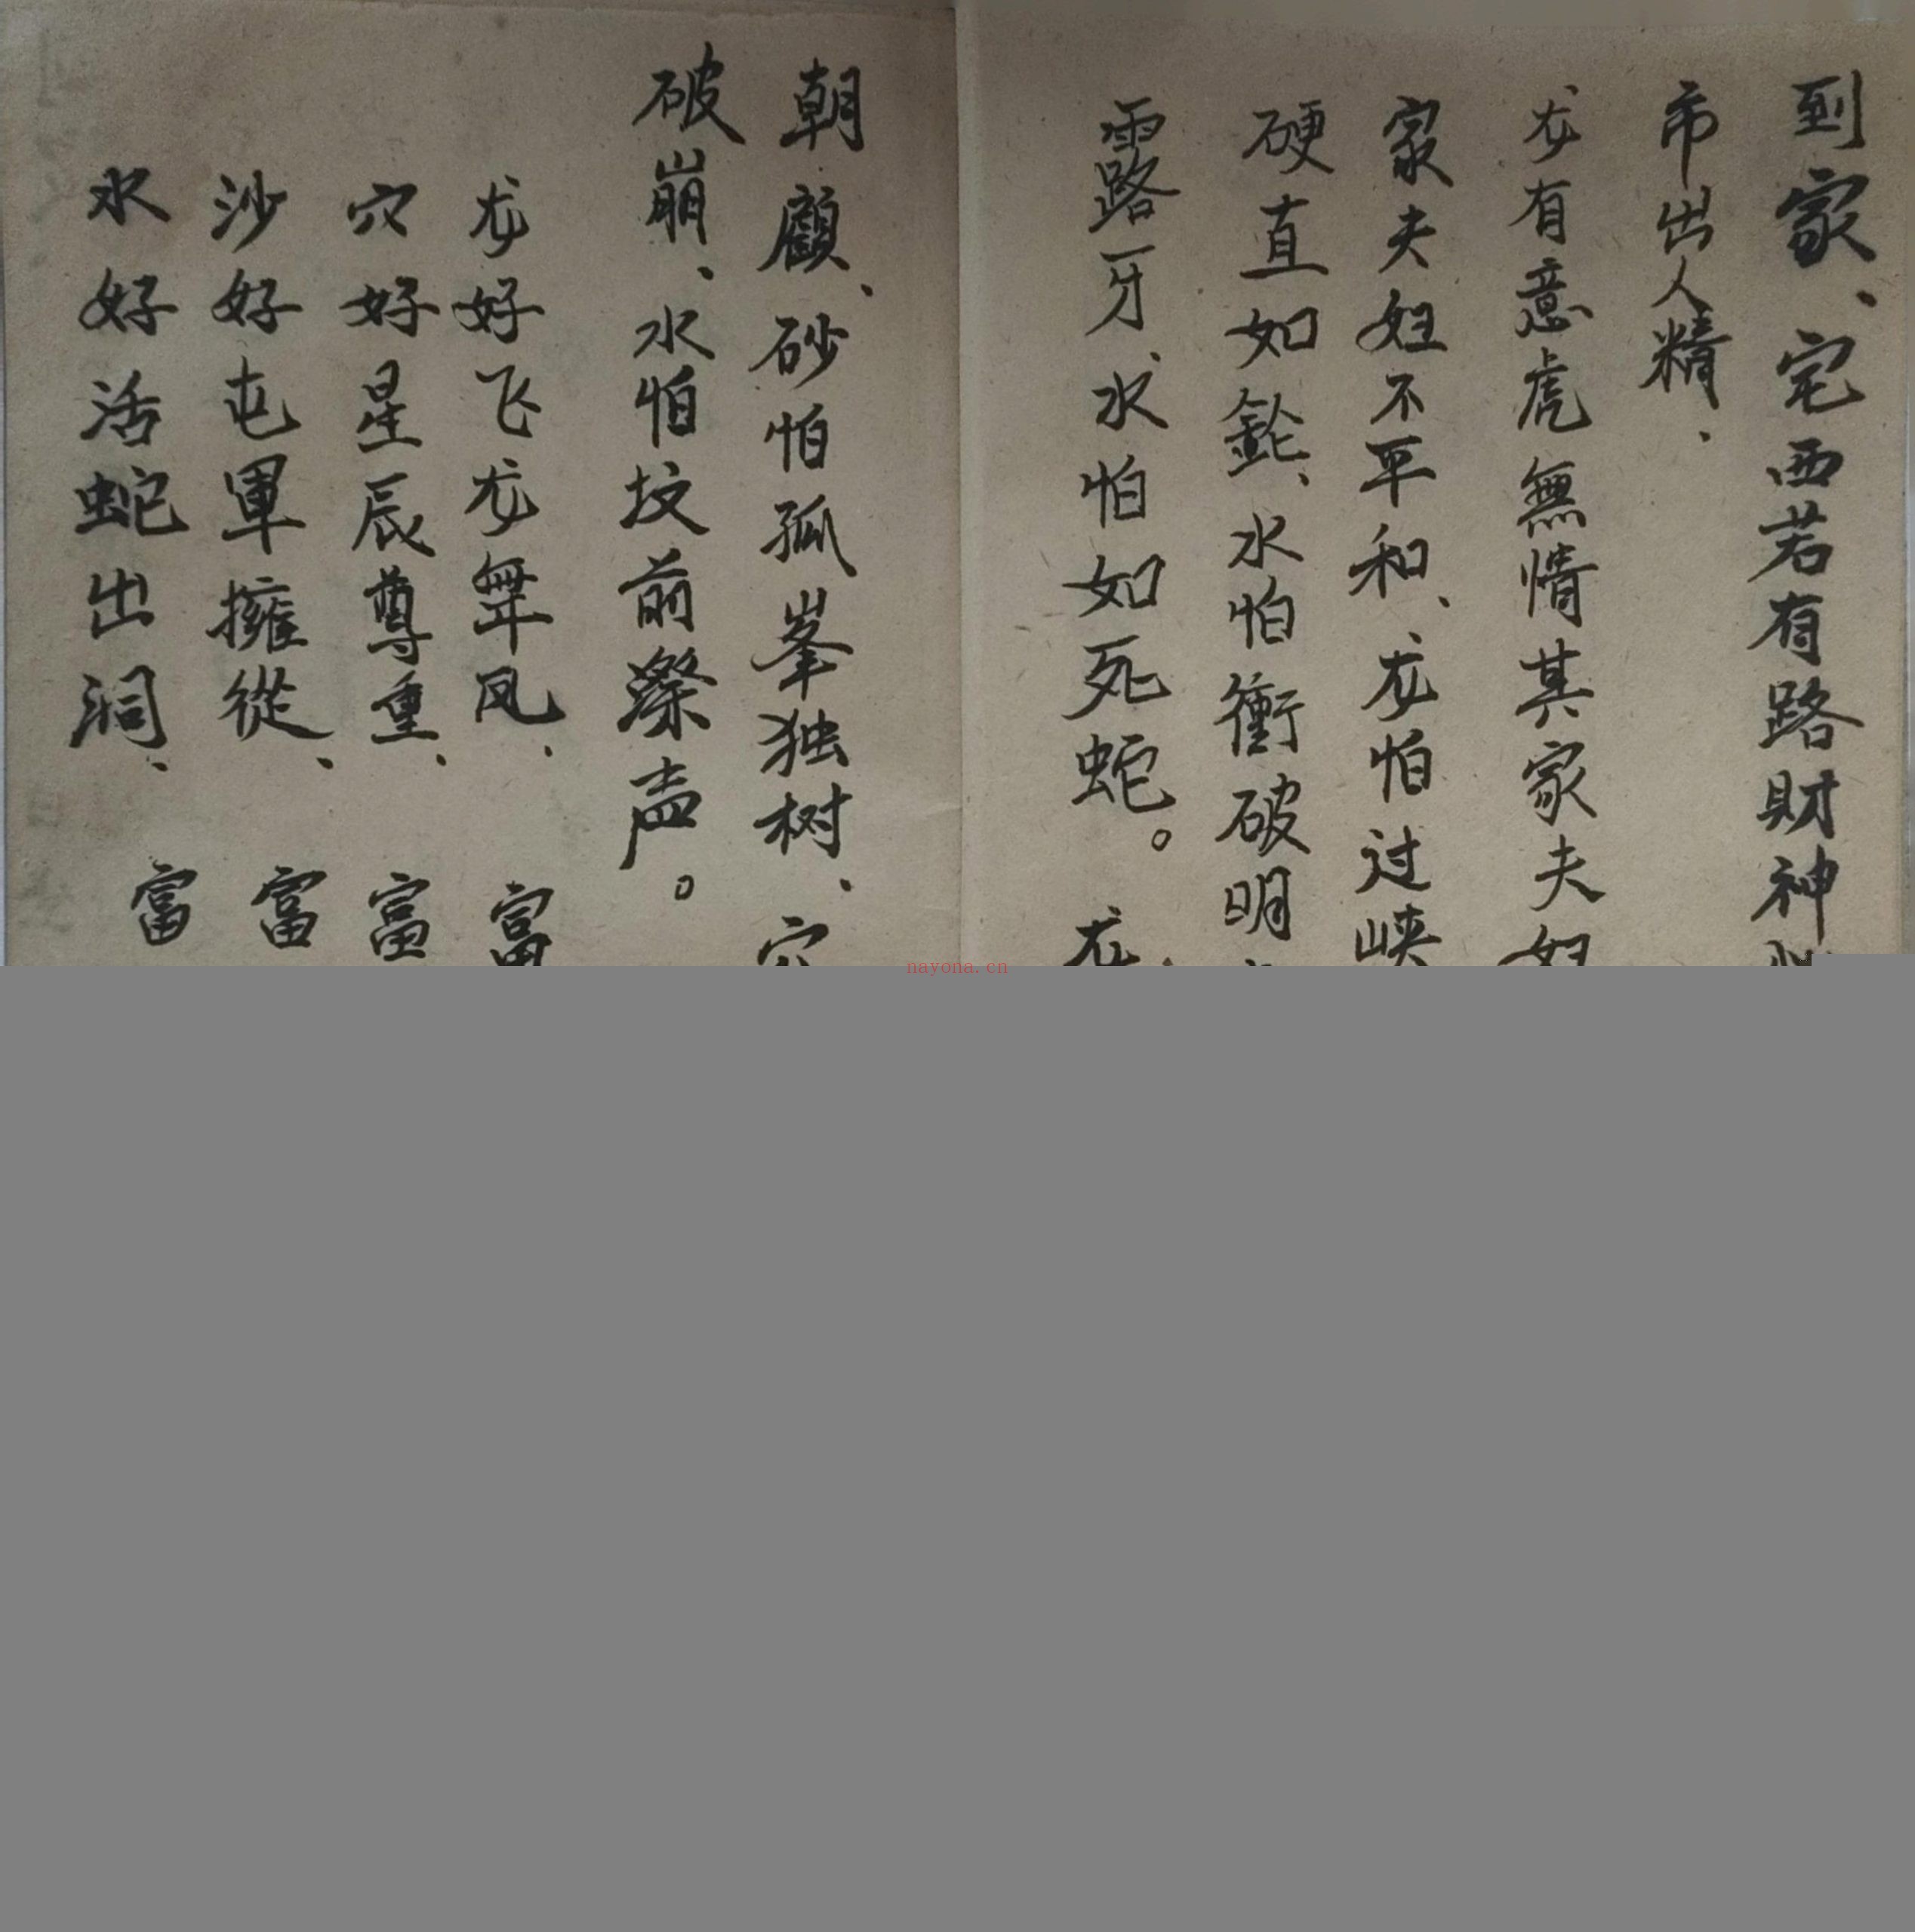 到家、宅西若有路財神
市出人精、
龙有意虎無情其家夫妇
家夫妇不平和、龙怕过峡
硬直如鈴、水怕衝破明
露牙、水怕如死蛇。龙
朝顧、砂怕孤峯独树、穴
破崩、水怕坟前濼声。
龙好飞龙舞凤、富
穴好星辰尊重、富
沙好屯軍擁從、富
水好活蛇出洞、富
nayona.cn